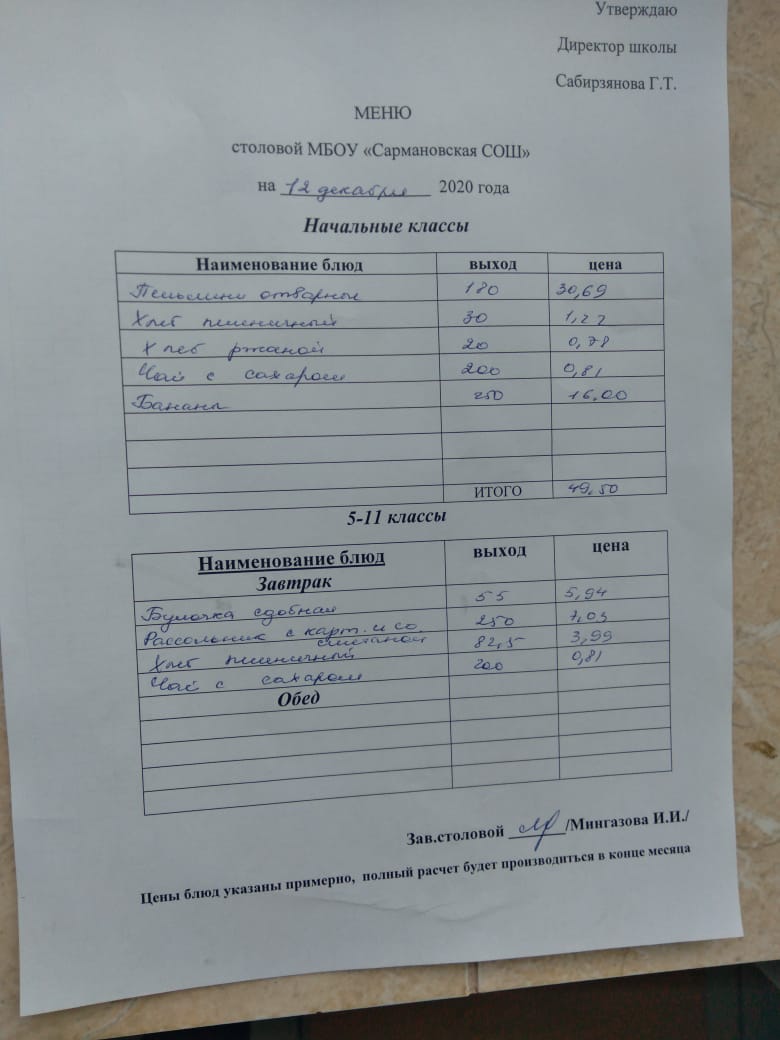 Утверждаю
Директор школы
Сабирзянова Г.Т.
МЕНЮ
столовой МБОУ «Сармановская СОШ»
на 12 декабря 2020 года
Начальные классы
Наименование блюд выход цена
Пельмени отварные 180 30,69
Хлеб пшеничный 30 1,22
Хлеб ржаной 20 0,78
Чай с сахаром 200 0,81
Бананы 250 16,00
ИТОГО 49,50
5-11 классы
Наименование блюд выход цена
Завтрак
Булочка сдобная 55 5,94
Рассольник с карт. и со сметаной 250 7,03
Хлеб пшеничный 82,5 3,99
Чай с сахаром 200 0,81
Обед
Зав.столовой /Мингазова И.И./
Цены блюд указаны примерно, полный расчет будет производиться в конце месяца